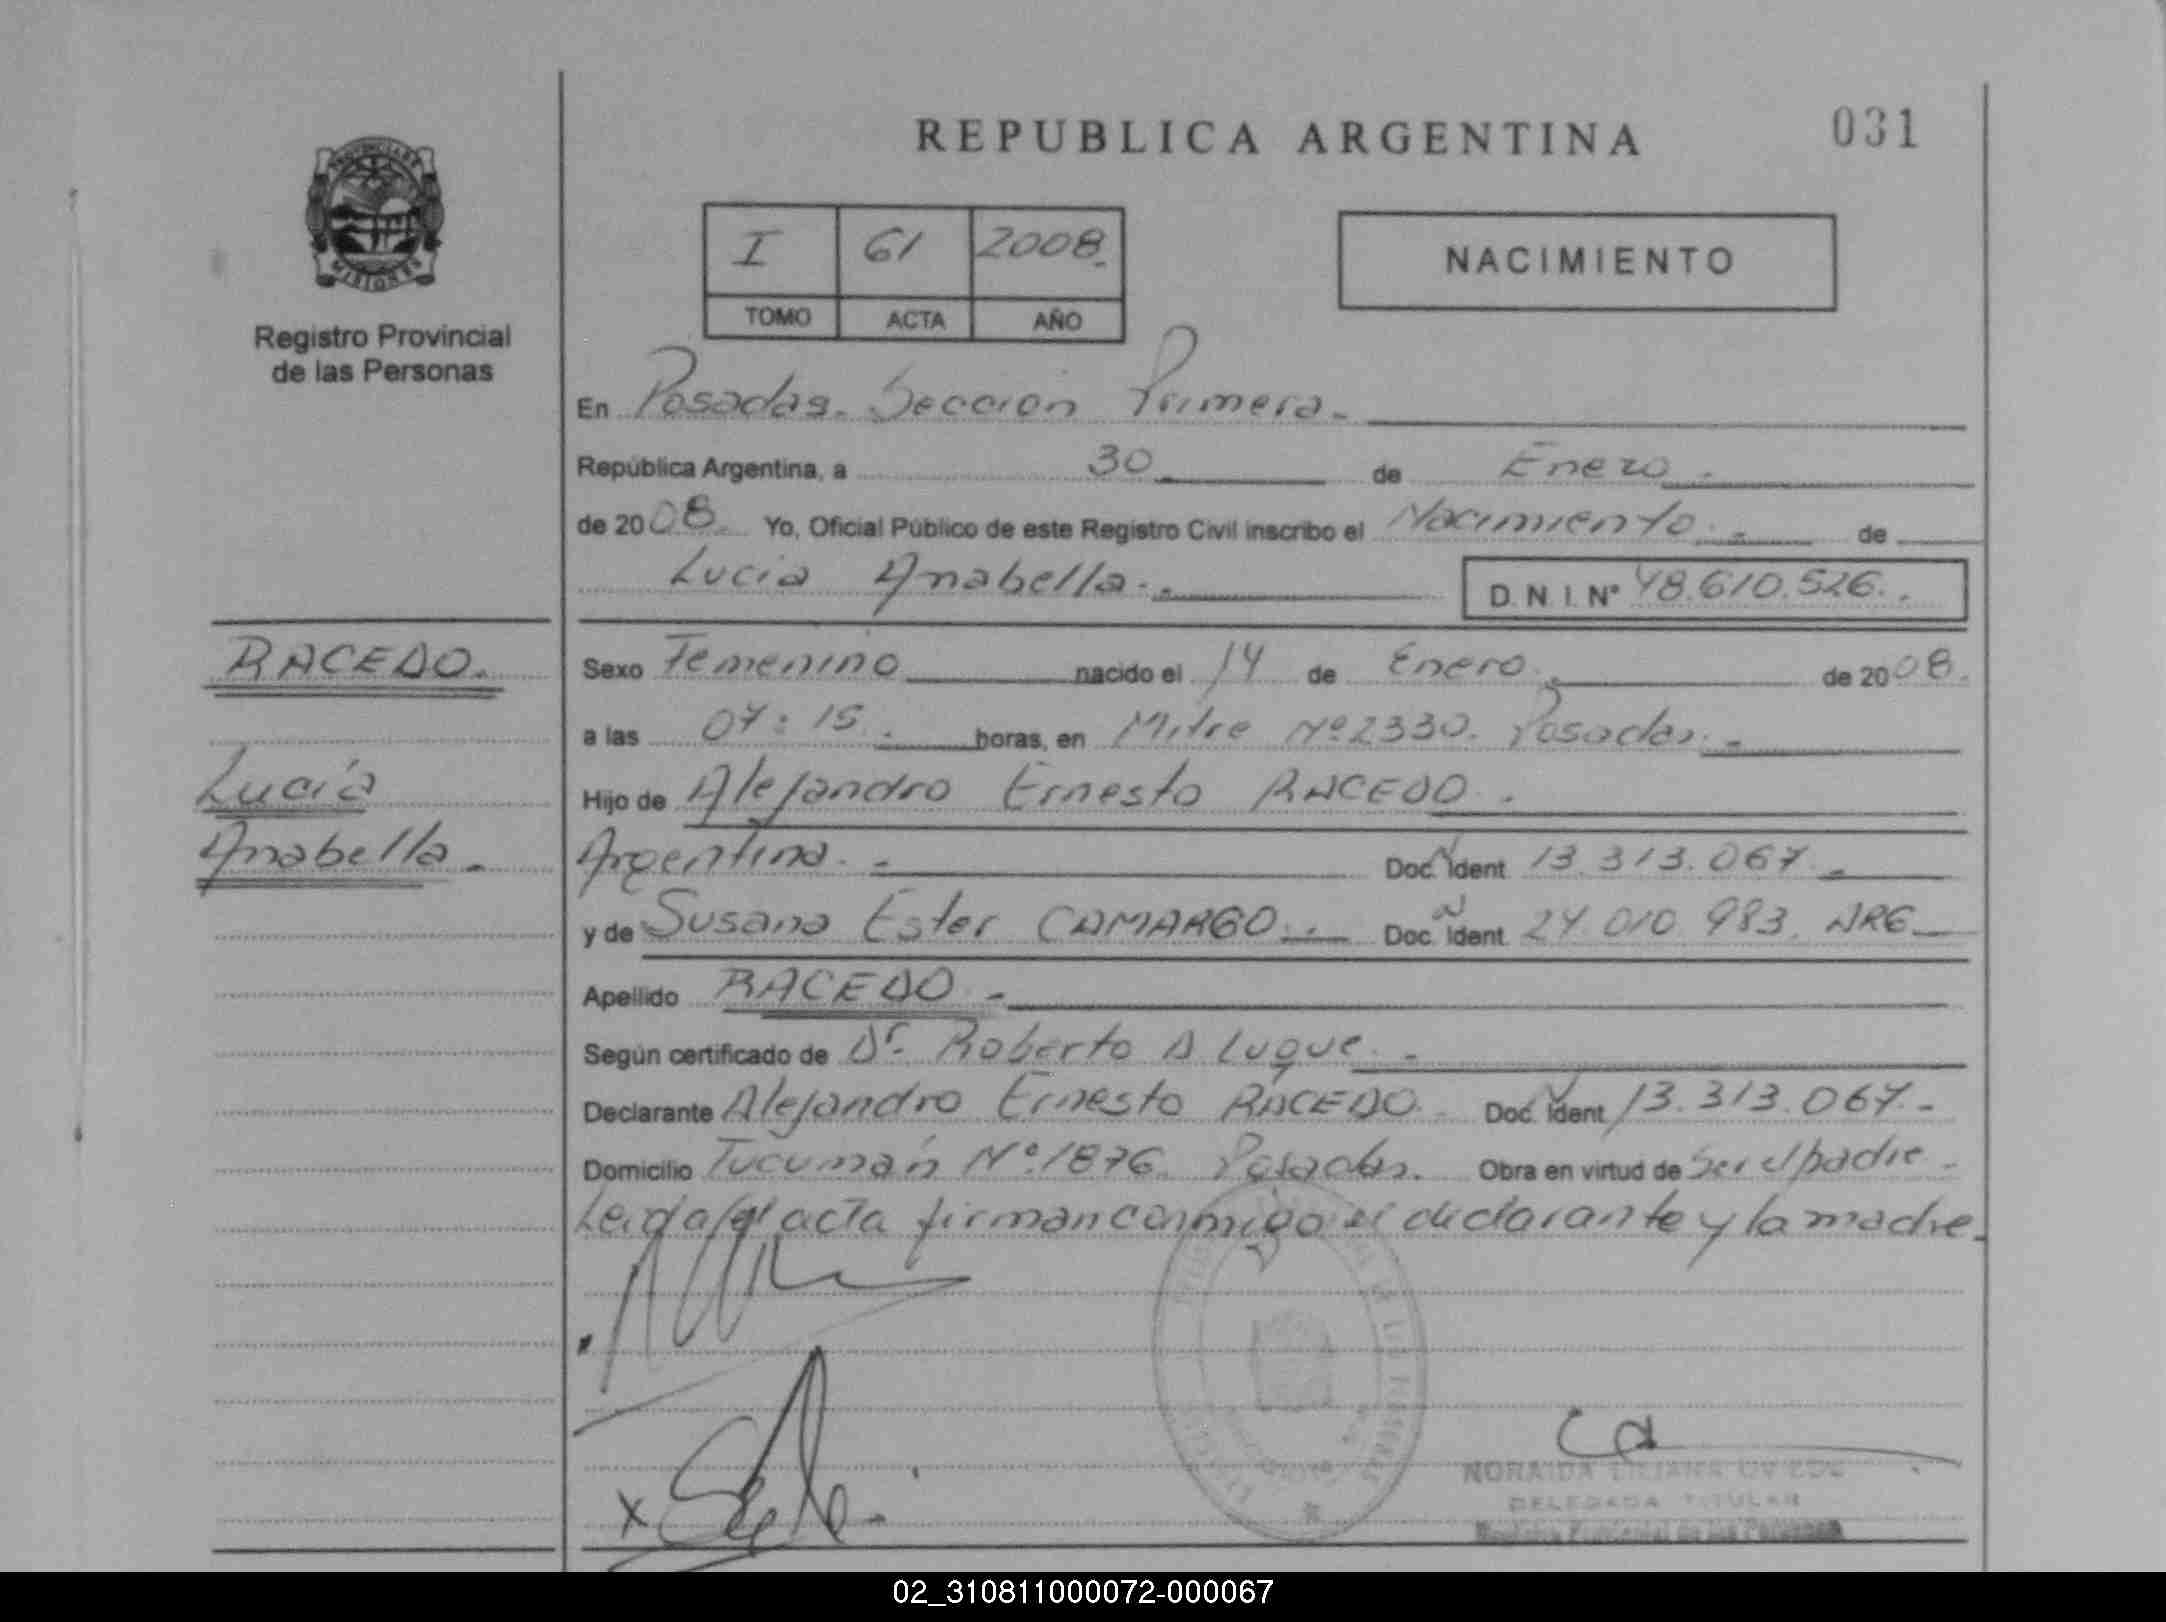 REPUBLICA ARGENTINA
031
PROVINCIA DE
MISIONES
Registro Provincial
de las Personas
I 61 2008.
TOMO ACTA AÑO
NACIMIENTO
En Posadas. Sección Primera.
República Argentina, a 30 de Enero.
de 2008. Yo, Oficial Público de este Registro Civil inscribo el Nacimiento. de
Lucia Anabella.
D.N.I. Nº 48.610.526.
RACEDO.
Lucía
Anabella.
Sexo Femenino nacido el 14 de Enero. de 2008.
a las 07:15. horas, en Mitre Nº 2330. Posadas.
Hijo de Alejandro Ernesto RACEDO.
Argentina. Doc. Ident 13.313.067.
y de Susana Ester CAMARGO. Doc. Ident. 24.010.983. ARG
Apellido RACEDO.
Según certificado de Dr. Roberto A Luque.
Declarante Alejandro Ernesto RACEDO. Doc. Ident 13.313.067.
Domicilio Tucumán Nº 1876. Posadas. Obra en virtud de Ser el padre.
Leida el acta firman conmigo el declarante y la madre.
NORAIDA LILIANA
DELEGADA TITULAR
Registro Provincial de las Personas
02_310811000072-000067